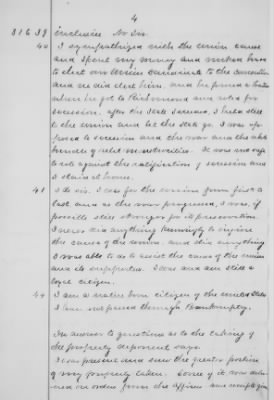 4
31 to 39 inclusive No Sir.
40 I sympathized with the union cause
and spent my money and worked hard
to elect our Union candidate to the convention
and we did elect him, and he proved a traitor
when he got to Richmond and voted for
secession. after the State seceded, I held still
to the union and let the state go. I was opposed
to secession and the war and the whole
bundle of rebel
to vote against the ratification of secession and
I staid at home.
41 I do sir. I was for the union from first to
last and as the war progressed, I was, if
possible still stronger for its preservation.
I never did anything knowingly to injure
the cause of the union. and did anything
I was able to do to assist the cause of the union
and its supporters. I was and am still a
loyal citizen.
I am a native born citizen of the United States
I have not passed through Bankruptcy.
In answer to questions as to the taking of
the property deponent says.
I was present and saw the greater portion
of my property taken. Some of it was
on orders from the officers and receipts